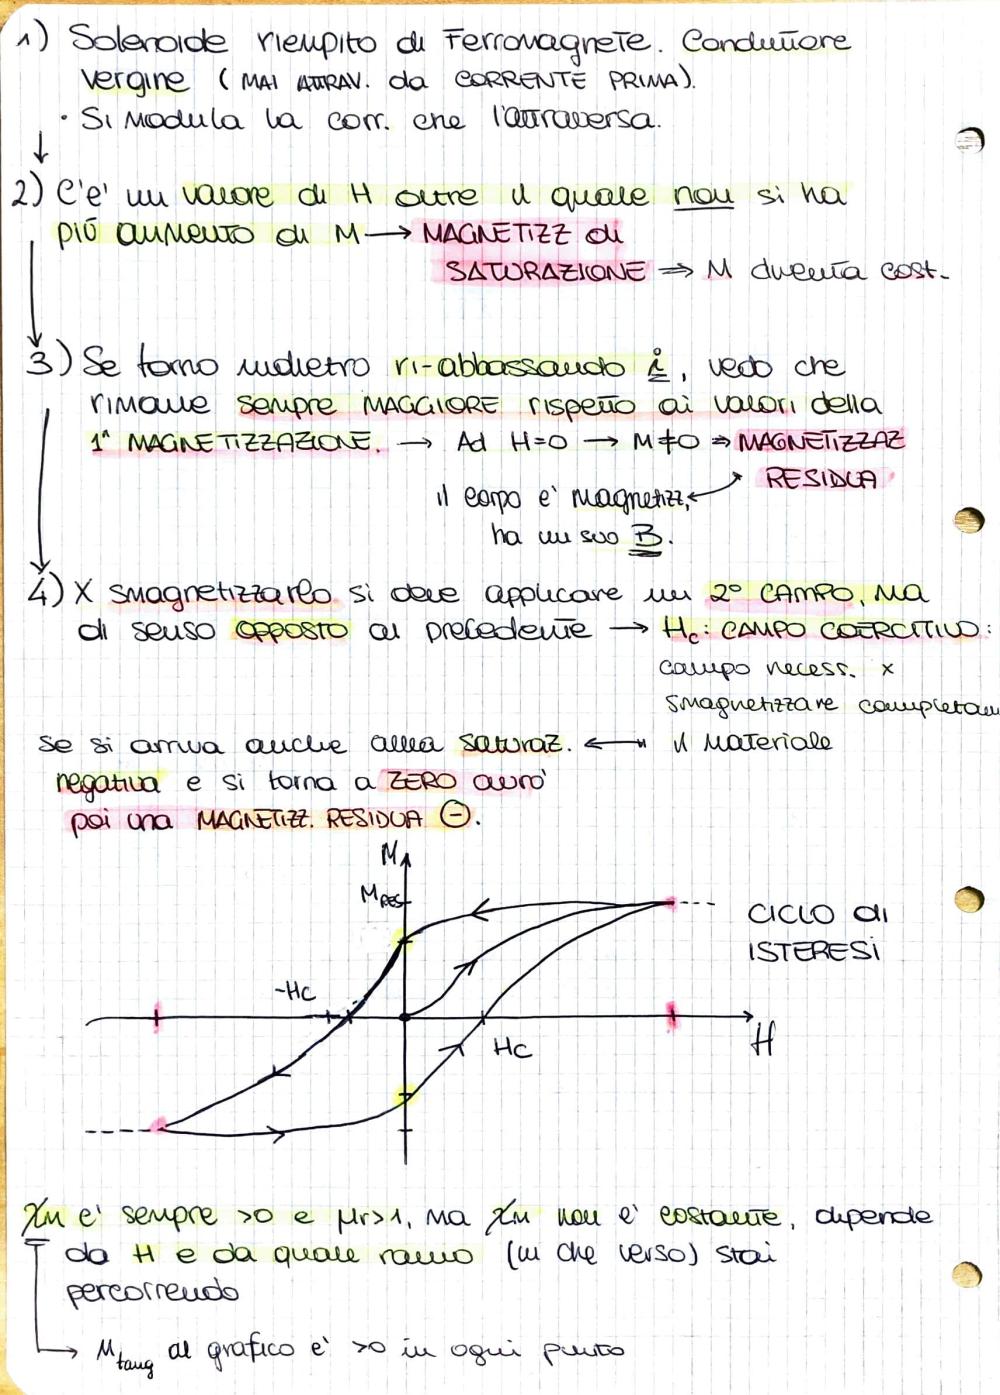 1) Solenoide riempito di Ferromagnete. Conduttore
vergine (MAI ATTRAV. da CORRENTE PRIMA).
• Si Modula la corr. che l'attraversa.
2) C'e' un valore di H oltre il quale non si ha
più aumento di M → MAGNETIZZ di
SATURAZIONE ⇒ M diventa cost.
3) Se torno indietro ri-abbassando i, vedo che
rimane sempre MAGGIORE rispetto ai valori della
1ª MAGNETIZZAZIONE. → Ad H=0 → M≠0 ⇒ MAGNETIZZAZ
RESIDUA
il corpo e' magnetizz,
ha un suo B.
4) X smagnetizzarlo si deve applicare un 2° CAMPO, MA
di senso OPPOSTO al precedente → Hc: CAMPO COERCITIVO:
campo necess. x
smagnetizzare completam
il Materiale
Se si arriva anche alla saturaz.
negativa e si torna a ZERO avro'
poi una MAGNETIZZ. RESIDUA ⊖.
M
MRES
CICLO di
ISTERESI
-HC
HC
H
χm e' sempre >0 e μr>1, ma χm non e' costante, dipende
da H e da quale ramo (in che verso) stai
percorrendo
→ Mtang al grafico e' >0 in ogni punto